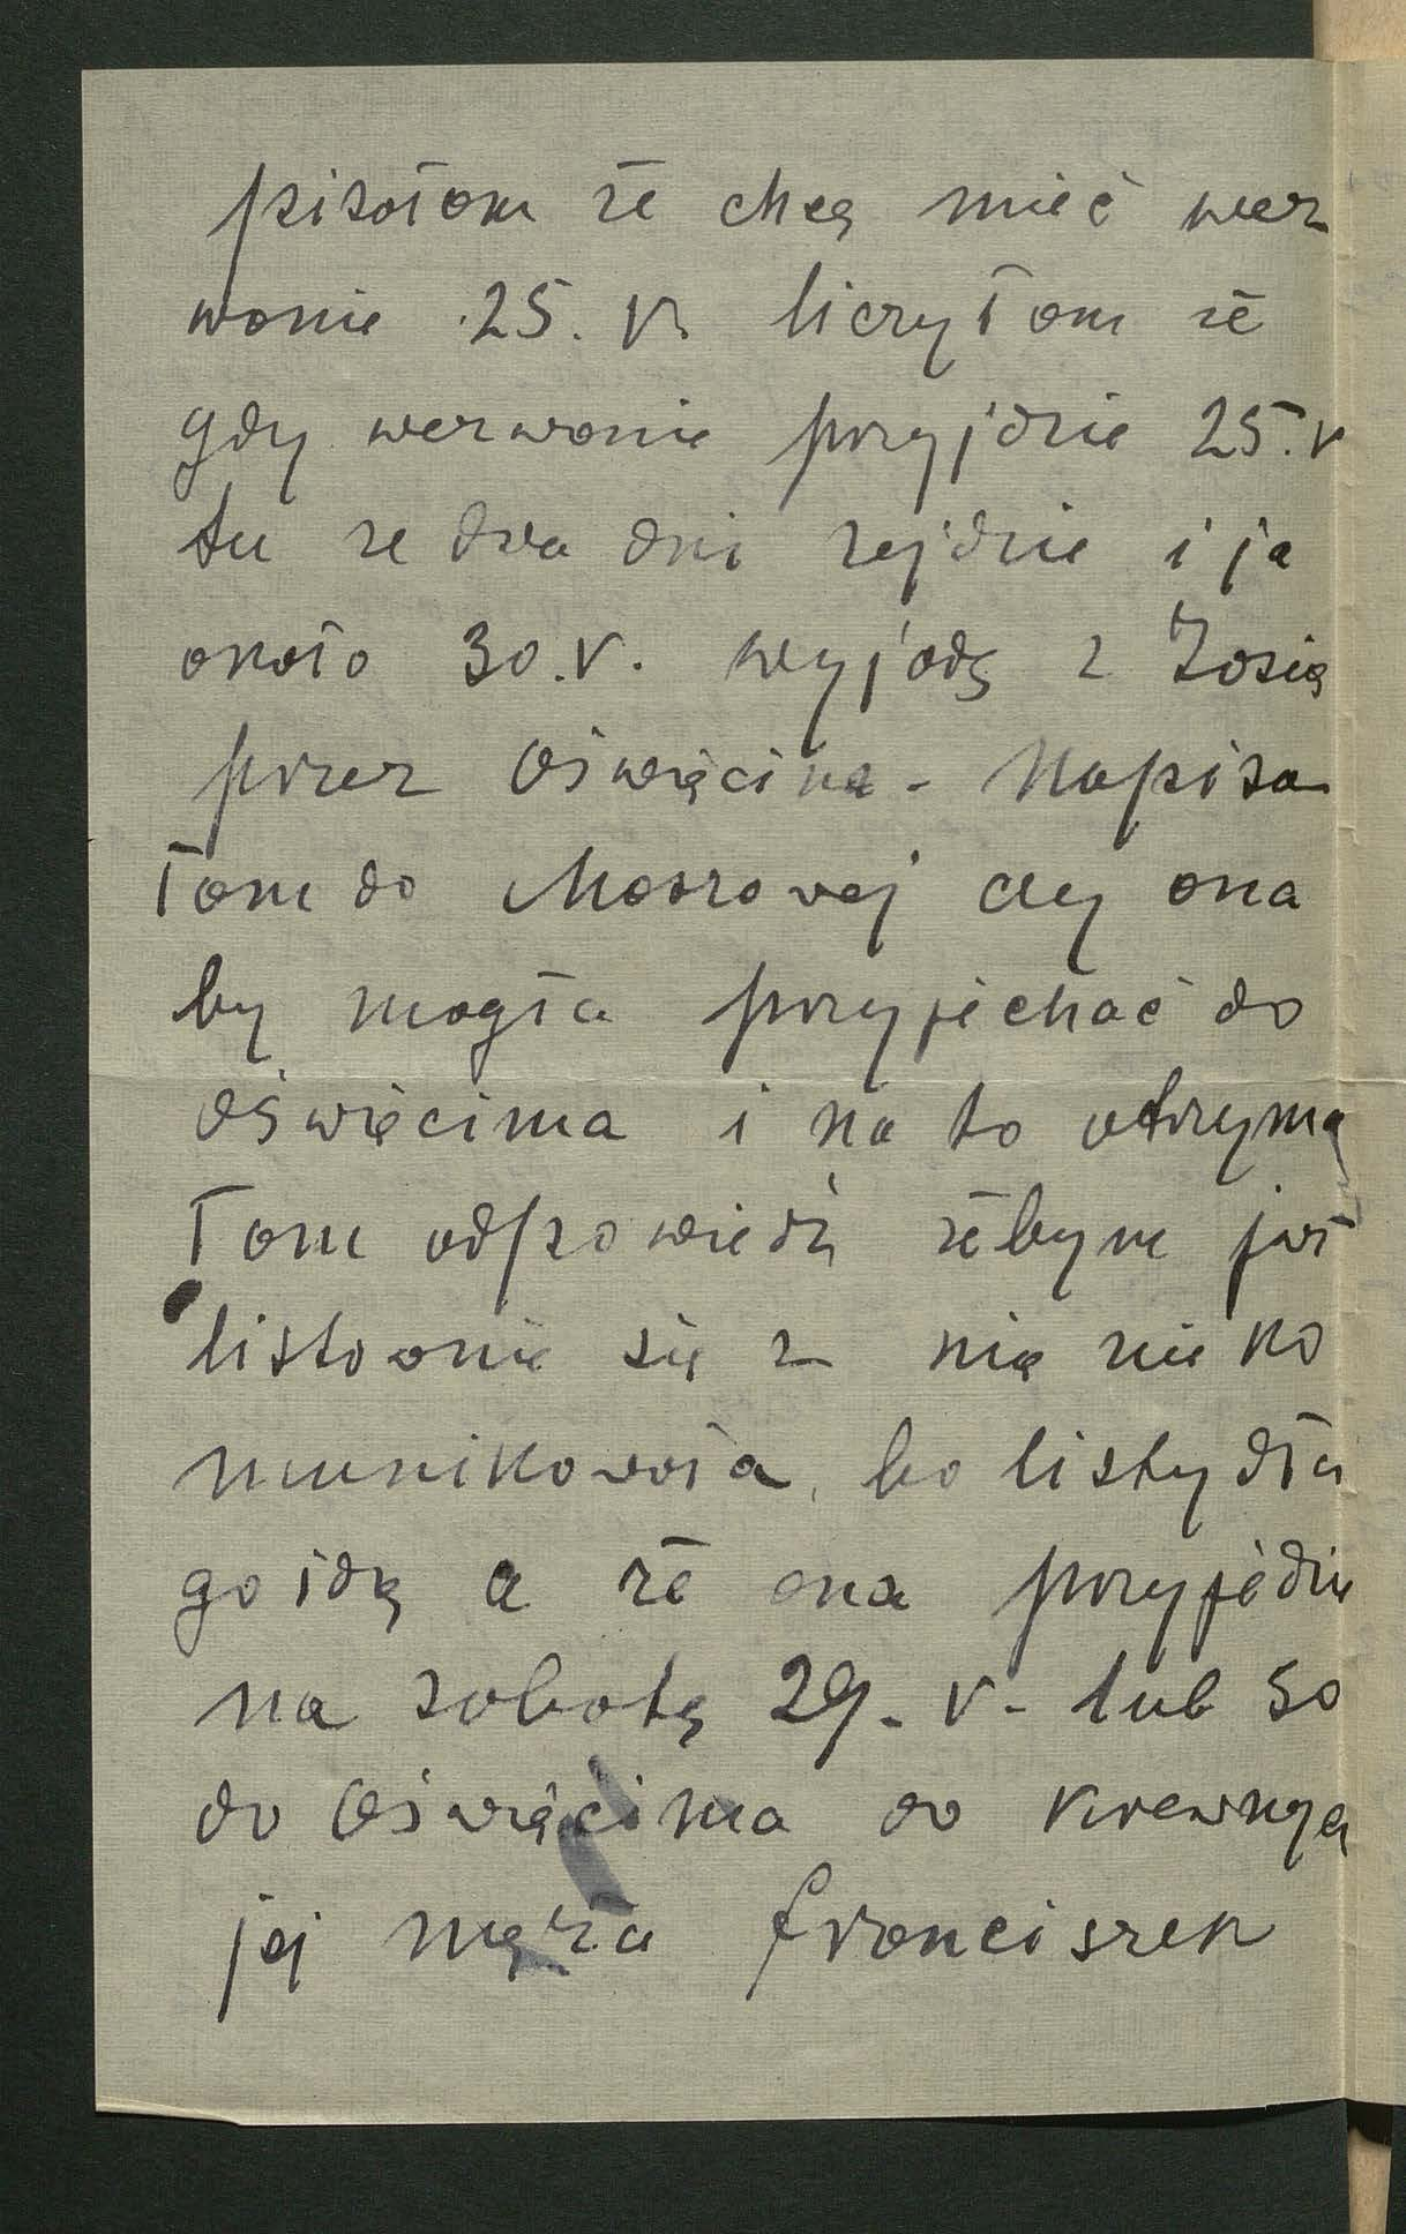 pisałam że chcę mieć wez
wanie 25. V. liczyłam że
gdy wezwanie przyjdzie 25. V
tu ze dwa dni zejdzie i ja
około 30. V. wyjadę z Zosią
przez Oświęcim - Napisa
łam do Mossowej czy ona
by mogła przyjechać do
Oświęcima i na to otrzyma
łam odpowiedź żebym już
listownie się z nią nie ko
munikowała, bo listy dłu
go idą a że ona przyjedzie
na sobotę 29. V. lub 30
do Oświęcima do krewnych
jej męża Franciszek